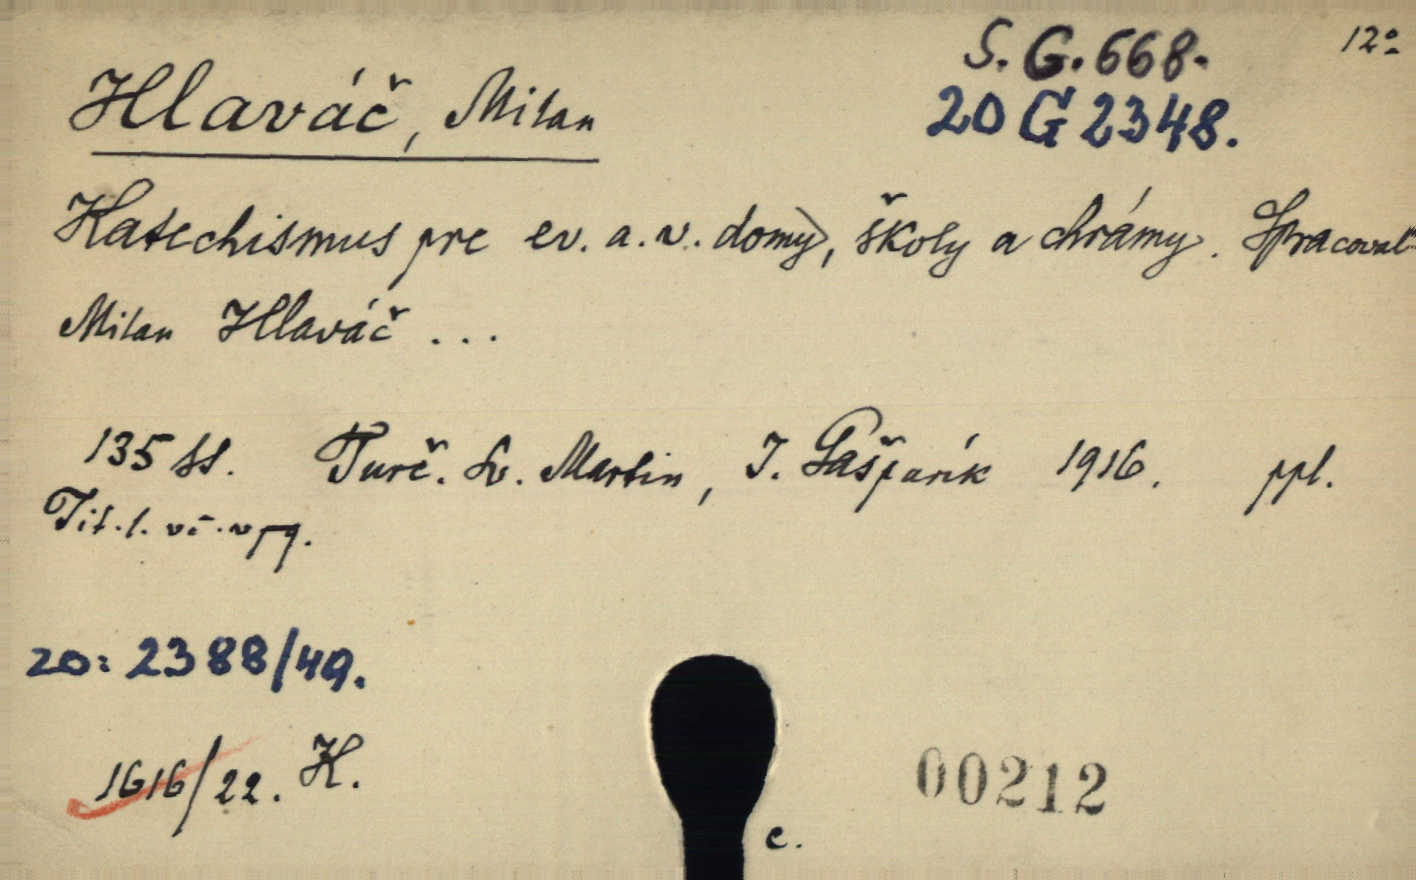 S. G. 668.
12º
Hlaváč, Milan
20 G 2348.
Katechismus pre ev. a. v. domy, školy a chrámy. Spracoval
Milan Hlaváč ...
135 ss. Turč. Sv. Martin, J. Gašparík 1916. ppl.
Tit. l. vč. v pg.
20: 2388/49.
1616/22. H.
00212
c.